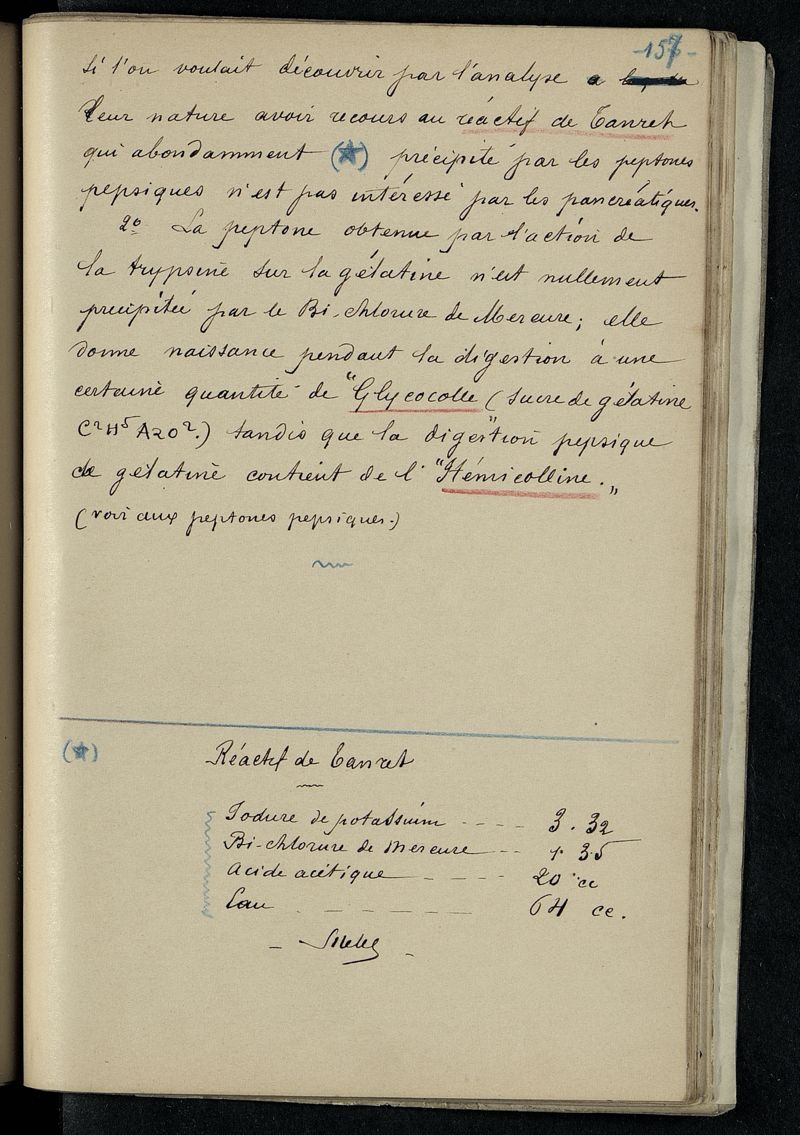 -157-
si l'on voulait découvrir par l'analyse
leur nature avoir recours au réactif de Tanret
qui abondamment (★) précipité par les peptones
pepsiques n'est pas intéressé par les pancréatiques.
2º La peptone obtenue par l'action de
la trypsine sur la gélatine n'est nullement
precipitée par le Bi-chlorure de Mercure; elle
donne naissance pendant la digestion à une
certaine quantité de "Glycocolle" (sucre de gélatine
C²H⁵AzO².) tandis que la digestion pepsique
de gélatine contient de l'"Hémicolline."
(voir aux peptones pepsiques.)
(★) Réactif de Tanret
Iodure de potassium ---- 3.32
Bi-chlorure de Mercure -- 1.35
Acide acétique ---- 20 cc
Eau ------ 64 cc.